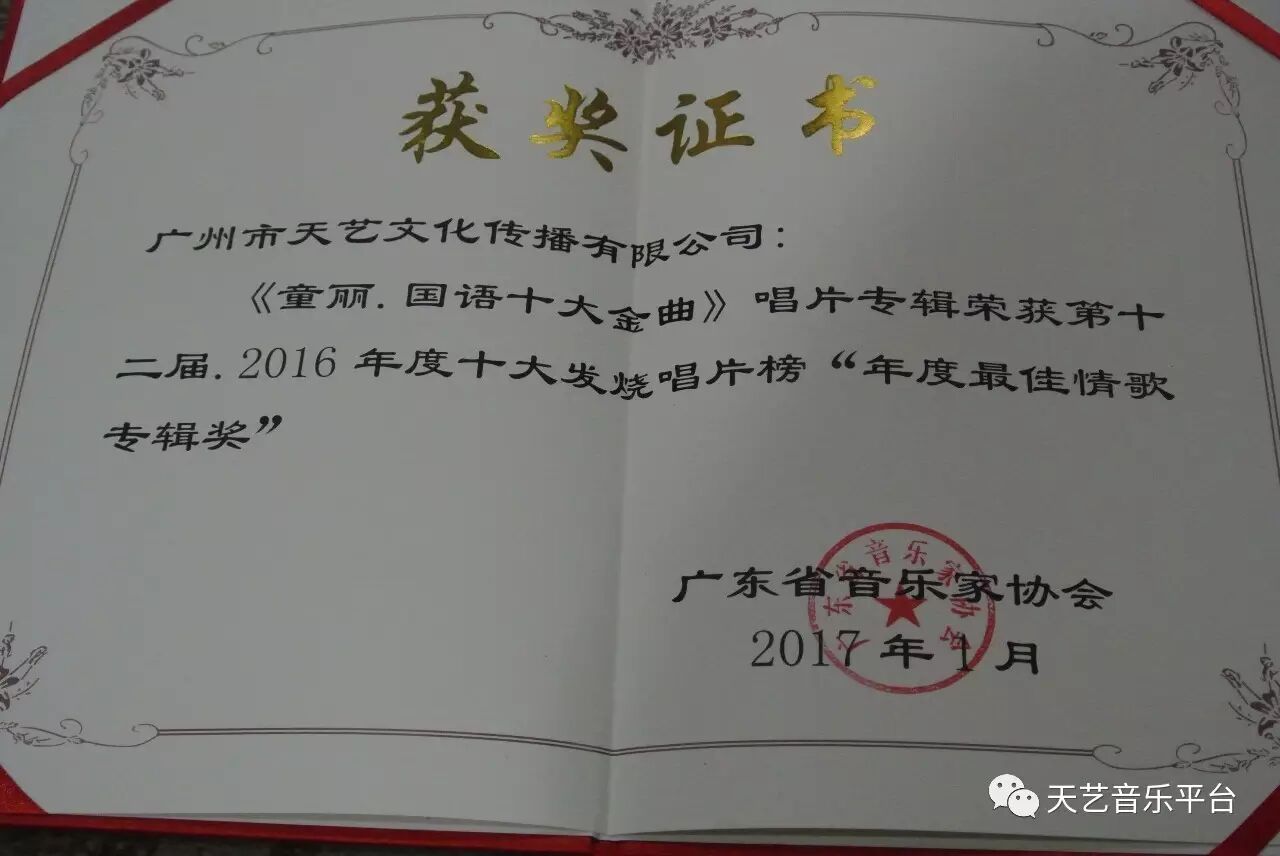 获奖证书
广州市天艺文化传播有限公司：
《童丽.国语十大金曲》唱片专辑荣获第十
二届.2016年度十大发烧唱片榜“年度最佳情歌
专辑奖”
广东省音乐家协会
2017年1月
广东省音乐家协会
天艺音乐平台